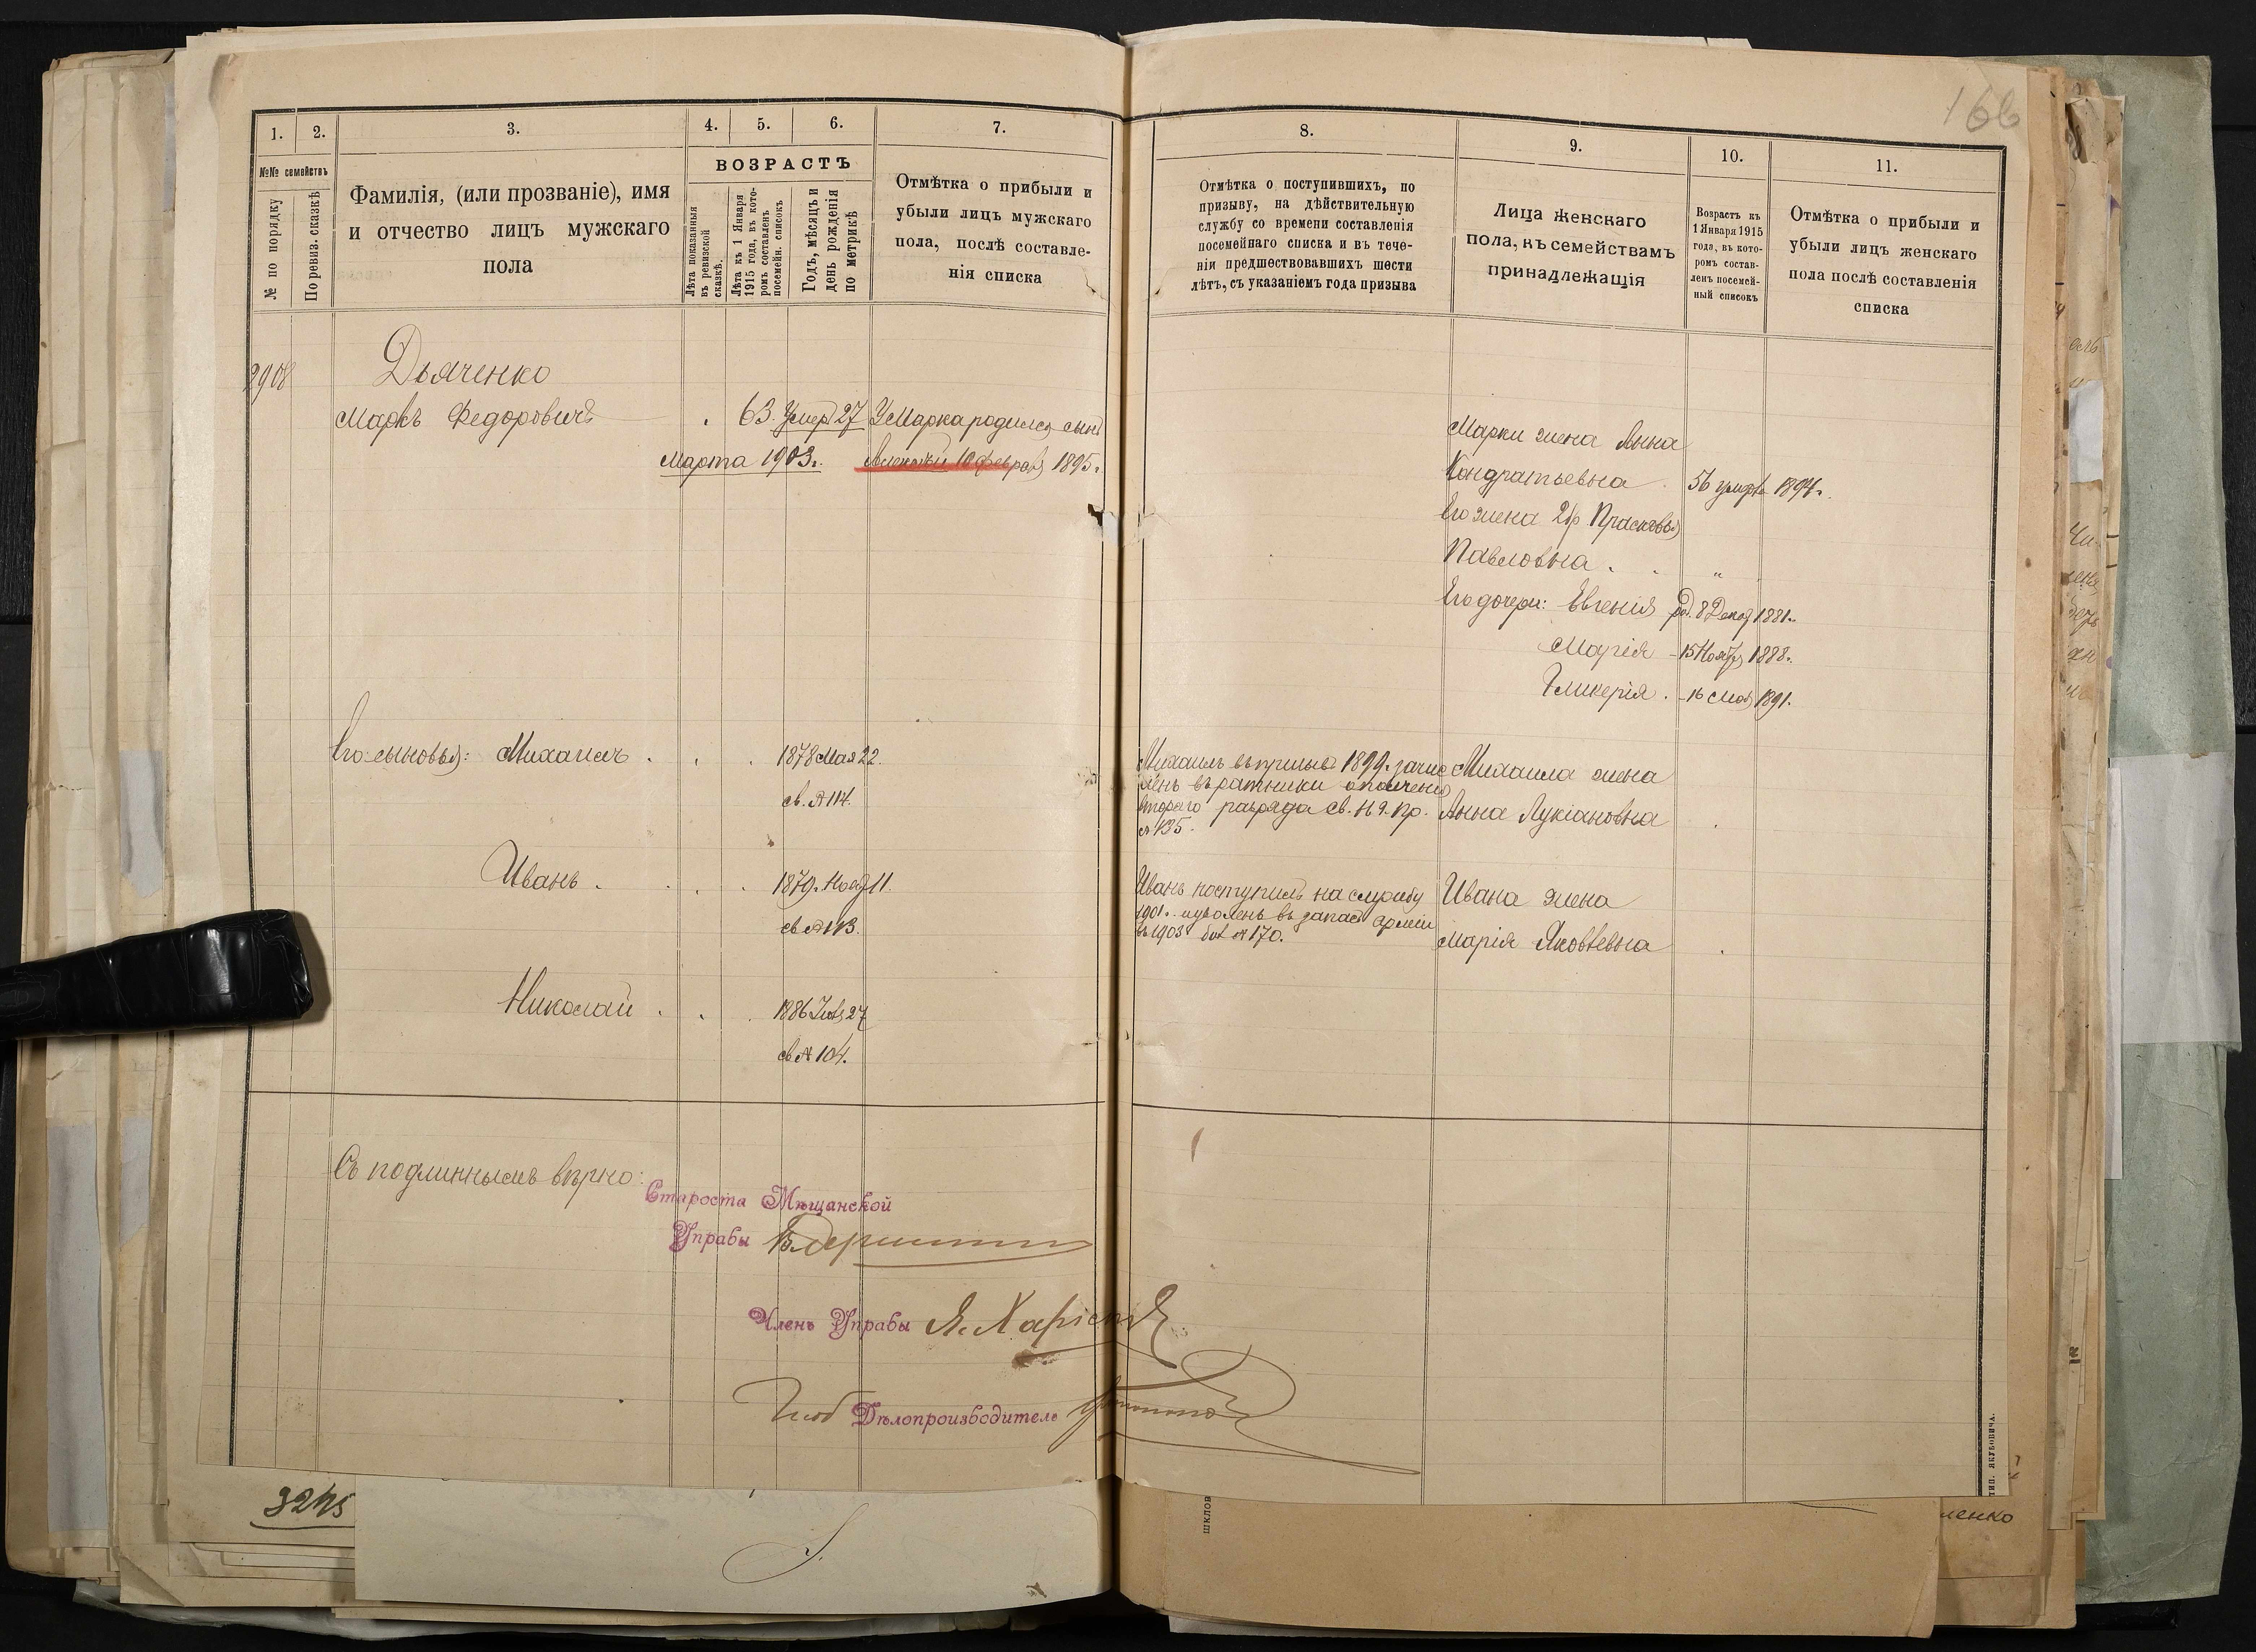 166
1.
2.
3.
4.
5.
6.
7.
№№ семействъ
№ по порядку
По ревиз. сказкѣ
Фамилія, (или прозваніе), имя
и отчество лицъ мужскаго
пола
ВОЗРАСТЪ
Лѣта показанныя
въ ревизской
сказкѣ.
Лѣта къ 1 Января
1915 года, въ кото-
ромъ составленъ
посемейн. списокъ
Годъ, мѣсяцъ и
день рожденія
по метрикѣ
Отмѣтка о прибыли и
убыли лицъ мужскаго
пола, послѣ составле-
нія списка
2908
Дьяченко
Маркъ Федоровичъ
63. Умеръ 27
Марта 1903 г.
У Марка родился сынъ
Алексѣй 10 Февраля 1895 г.
Его сыновья: Михаилъ
1878 Мая 22.
св. № 114.
Иванъ
1879. Нояб 11.
св № 113.
Николай
1886 27
св № 104.
Съ подлиннымъ вѣрно:
Староста Мѣщанской
Управы
Членъ Управы
Дѣлопроизводитель
3245
8.
9.
10.
11.
Отмѣтка о поступившихъ, по
призыву, на дѣйствительную
службу со времени составленія
посемейнаго списка и въ тече-
ніи предшествовавшихъ шести
лѣтъ, съ указаніемъ года призыва
Лица женскаго
пола, къ семействамъ
принадлежащія
Возрастъ къ
1 Января 1915
года, въ кото-
ромъ состав-
ленъ посемей-
ный списокъ
Отмѣтка о прибыли и
убыли лицъ женскаго
пола послѣ составленія
списка
Марки жена Анна
Кондратьевна 56 умерла 1894 г.
Его жена 2 бр Прасковья
Павловна "
Его дочери: Евгенія род. 8 Декаб 1881 г.
Марія - 15 Ноябр 1888 г.
Гликерія - 16 Мая 1891.
Михаилъ въ призывъ 1899 г. зачис
ленъ въ ратники ополченія
второго разряда св. пр.
№ 135.
Михаила жена
Анна Лукіановна
Иванъ поступилъ на службу
1901 г. уволенъ въ запасъ арміи
въ 1903 бил № 170.
Ивана жена
Марія Яковлевна
ТИП. ЯКУБОВИЧА.
шклов
ленко